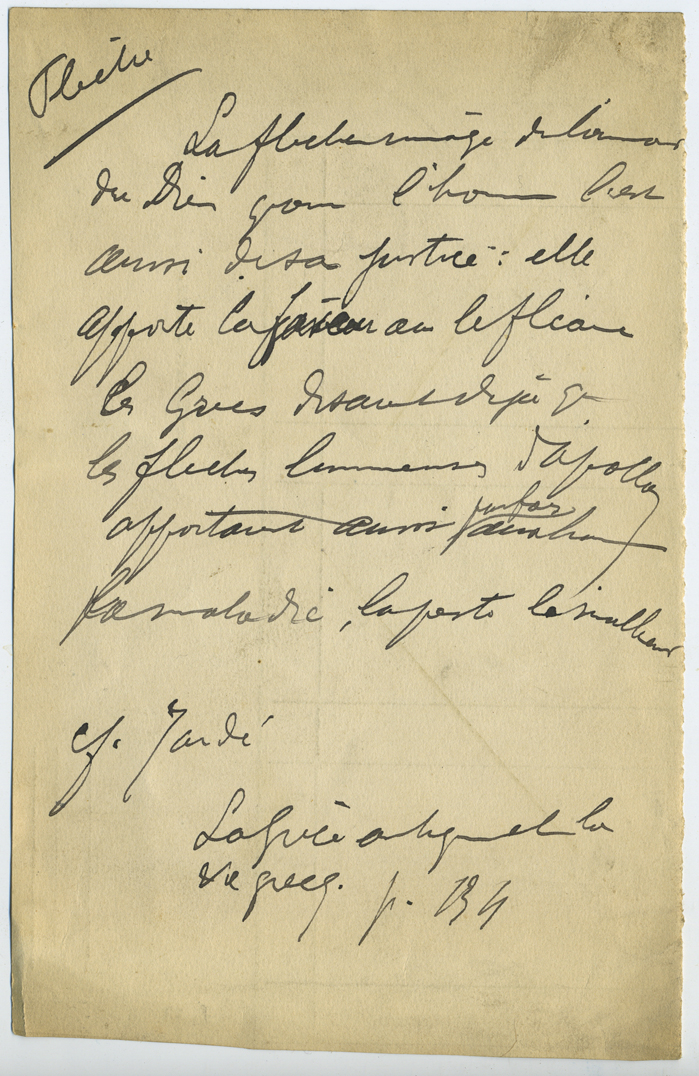 Flèche
La flèche image de l'amour
de Dieu pour l'homme l'est
aussi de sa justice : elle
apporte la faveur ou le fléau
les Grecs disaient déjà que
les flèches lumineuses d'Apollon
parfois
apportaient aussi
la maladie, la peste le malheur
cf. Jardé
La Grèce antique et la
vie grecq. p. 134